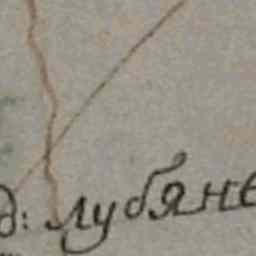 д: лубяне